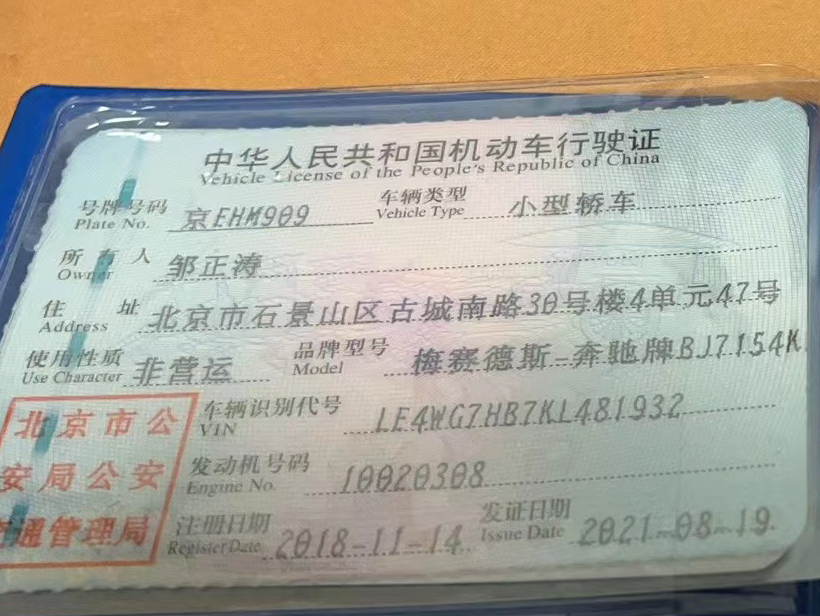 中华人民共和国机动车行驶证
Vehicle License of the People's Republic of China
号牌号码 京EHM909 车辆类型 小型轿车
Plate No. Vehicle Type
所有人 邹正涛
Owner
住址 北京市石景山区古城南路30号楼4单元47号
Address
使用性质 非营运 品牌型号 梅赛德斯-奔驰牌BJ7154K
Use Character Model
北京市公
安局公安
通管理局
车辆识别代号 LE4WG7HB7KL481932
VIN
发动机号码 10020308
Engine No.
注册日期 2018-11-14 发证日期 2021-08-19
Register Date Issue Date